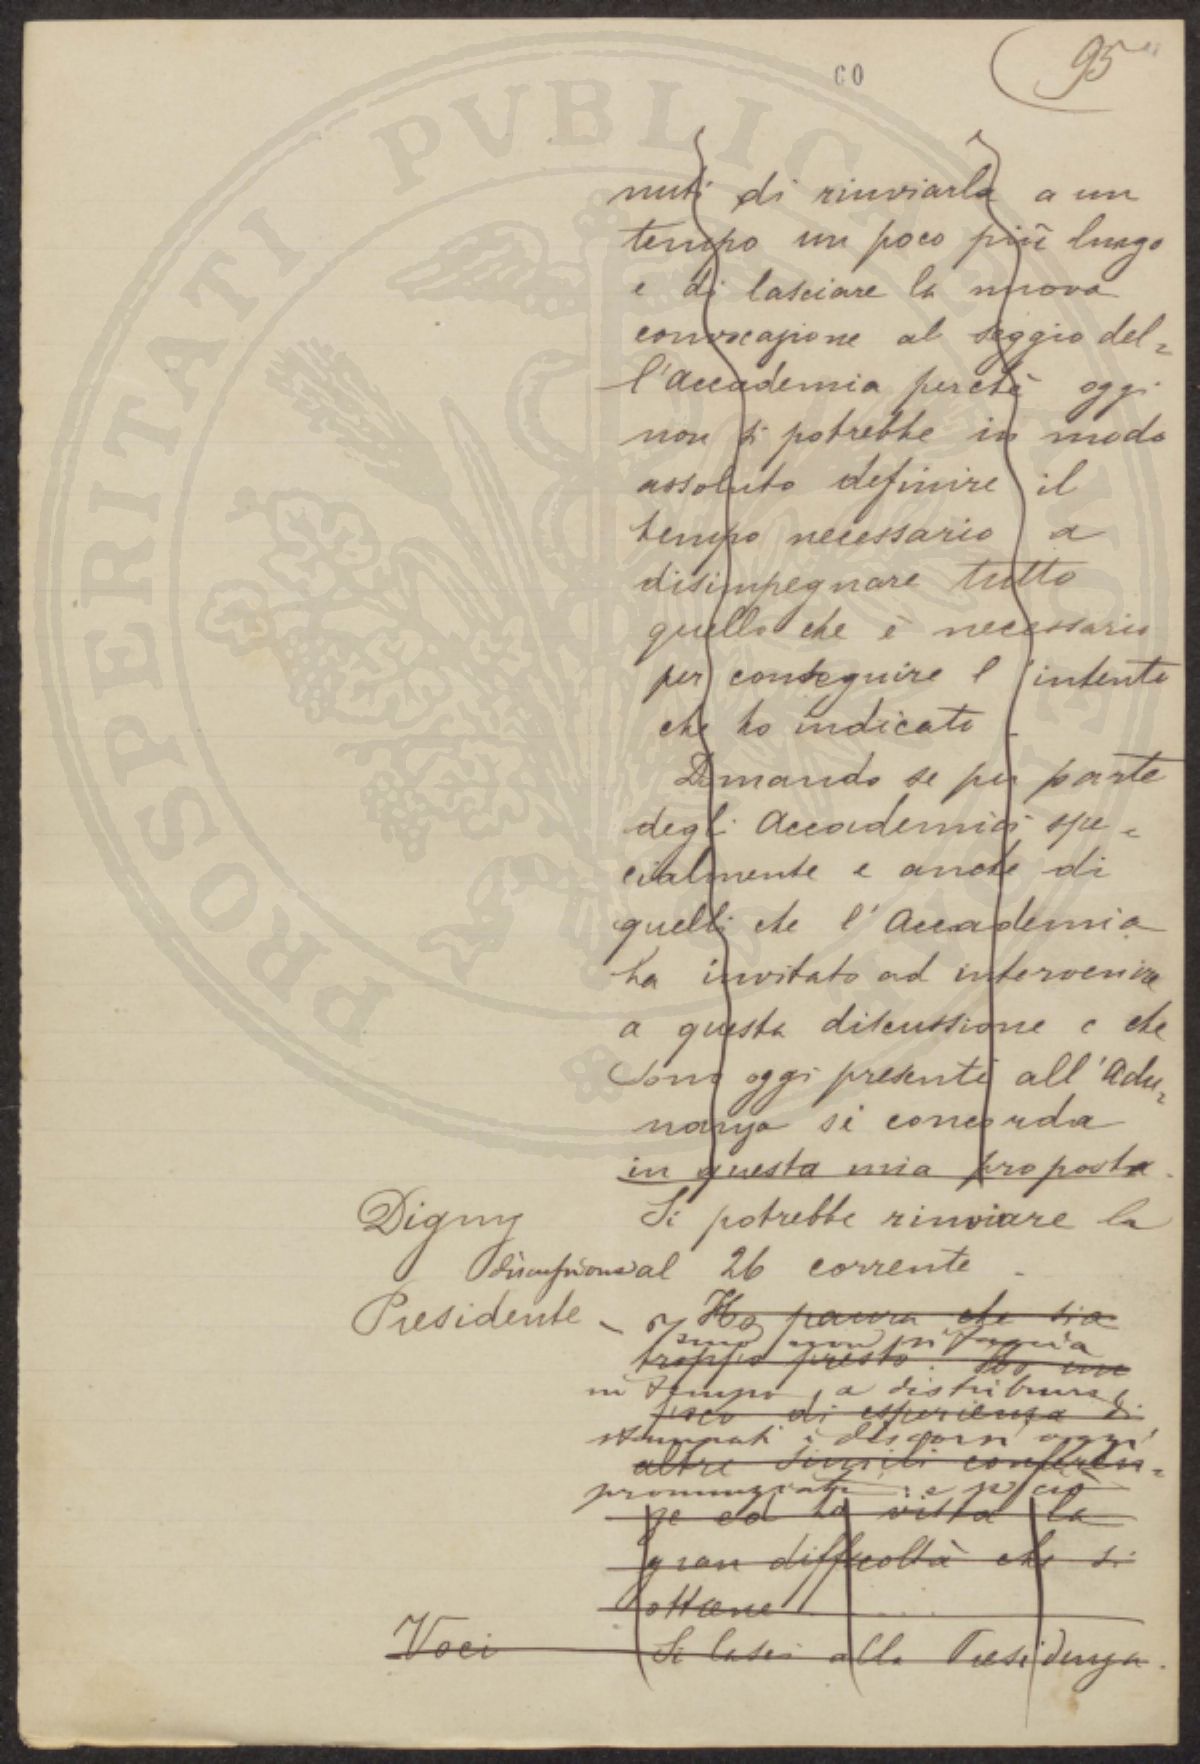 95
60
PVBLICAE
PROSPERITATI
nuti di rinviarla a un
tempo un poco più lungo
e di lasciare la nuova
convocazione al seggio del=
l'Accademia perchè oggi
non si potrebbe in modo
assoluto definire il
tempo necessario a
disimpegnare tutto
quello che è necessario
per conseguire l'intento
che ho indicato.
Dimando se per parte
degli Accademici spe=
cialmente e anche di
quelli che l'Accademia
ha invitato ad intervenire
a questa discussione e che
sono oggi presenti all'Adu=
nanza si concorda
in questa mia proposta.
Digny Si potrebbe rinviare la
discussione al 26 corrente.
Presidente – Ho paura che sia
non si
troppo presto. Ho un
tempo a distribuire
poco di esperienza di
stampati i discorsi oggi
altre simili conferen=
pronunziati e
ze ed ho vista la
gran difficoltà che si
ottiene
Voci Si lasci alla Presidenza.